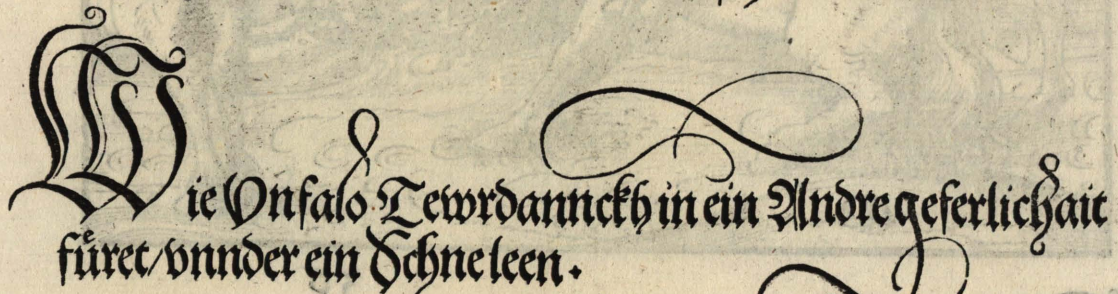 Wie Vnfalo Tewrdannckh in ein Andre geferlichait
fuͤret/vnnder ein Schneleen.